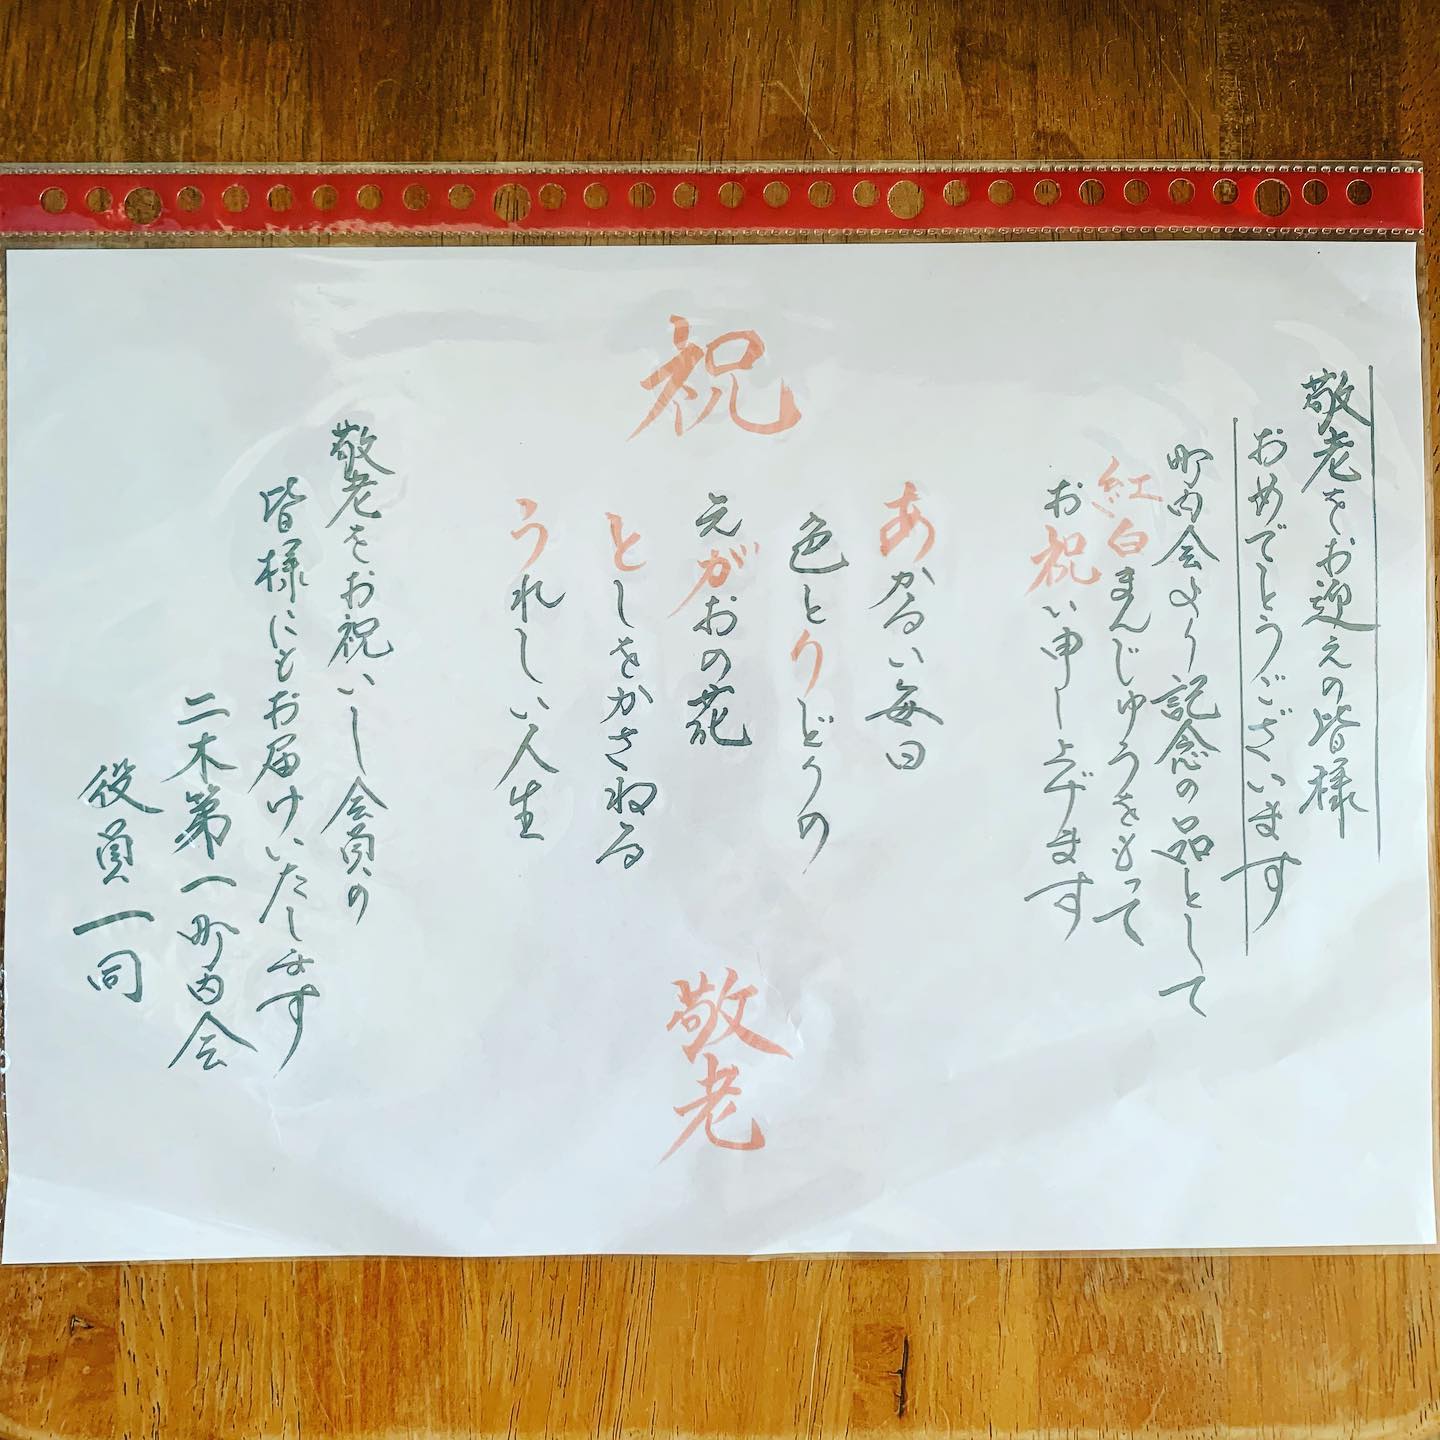 敬老をお迎えの皆様
おめでとうございます
町内会より記念の品として
紅白まんじゅうをもって
お祝い申し上げます
祝
あかるい毎日
色とりどりの
えがおの花
としをかさねる
うれしい人生
敬老
敬老をお祝いし会員の
皆様にもお届けいたします
二木第一町内会
役員一同